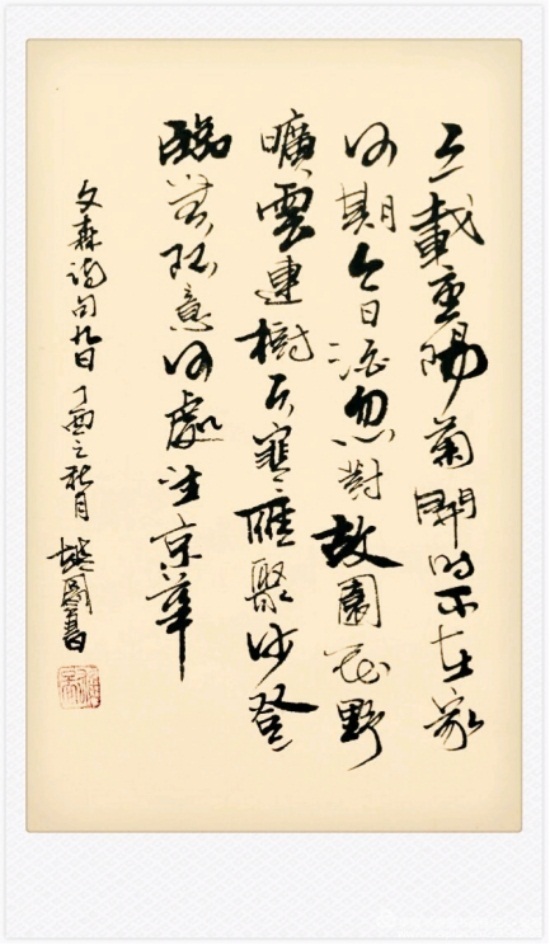 三載重陽菊開時不在家
何期今日酒忽對故園花野
曠雲連樹天寒雁聚沙登
臨無限意何處望京華
文森詩句九日 丁酉之秋月 書